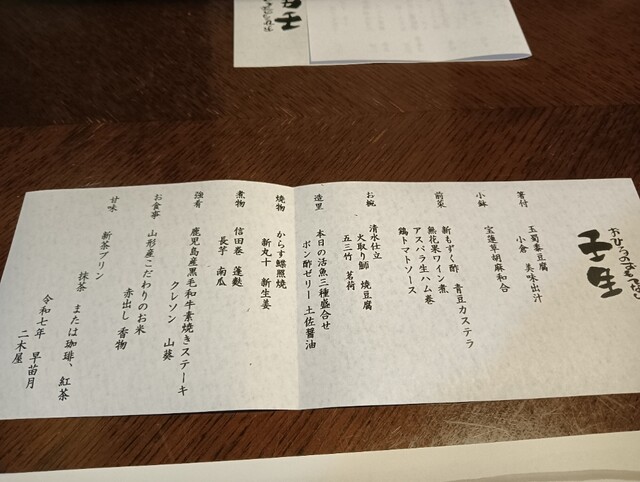 おひるのおもてなし
壬生
箸付
玉蜀黍豆腐
小倉 美味出汁
小鉢
宝蓮草胡麻和合
前菜
新もずく酢 青豆カステラ
無花果ワイン煮
アスパラ生ハム巻
鶏トマトソース
お椀
清水仕立
火取り鰤 焼豆腐
五三竹 茗荷
造里
本日の活魚三種盛合せ
ポン酢ゼリー 土佐醤油
焼物
からす鰈照焼
新丸十 新生姜
煮物
信田巻 蓬麩
長芋 南瓜
強肴
鹿児島産黒毛和牛素焼きステーキ
クレソン 山葵
お食事
山形産こだわりのお米
赤出し 香物
甘味
新茶プリン
抹茶 または珈琲、紅茶
令和七年 早苗月
二木屋
壬